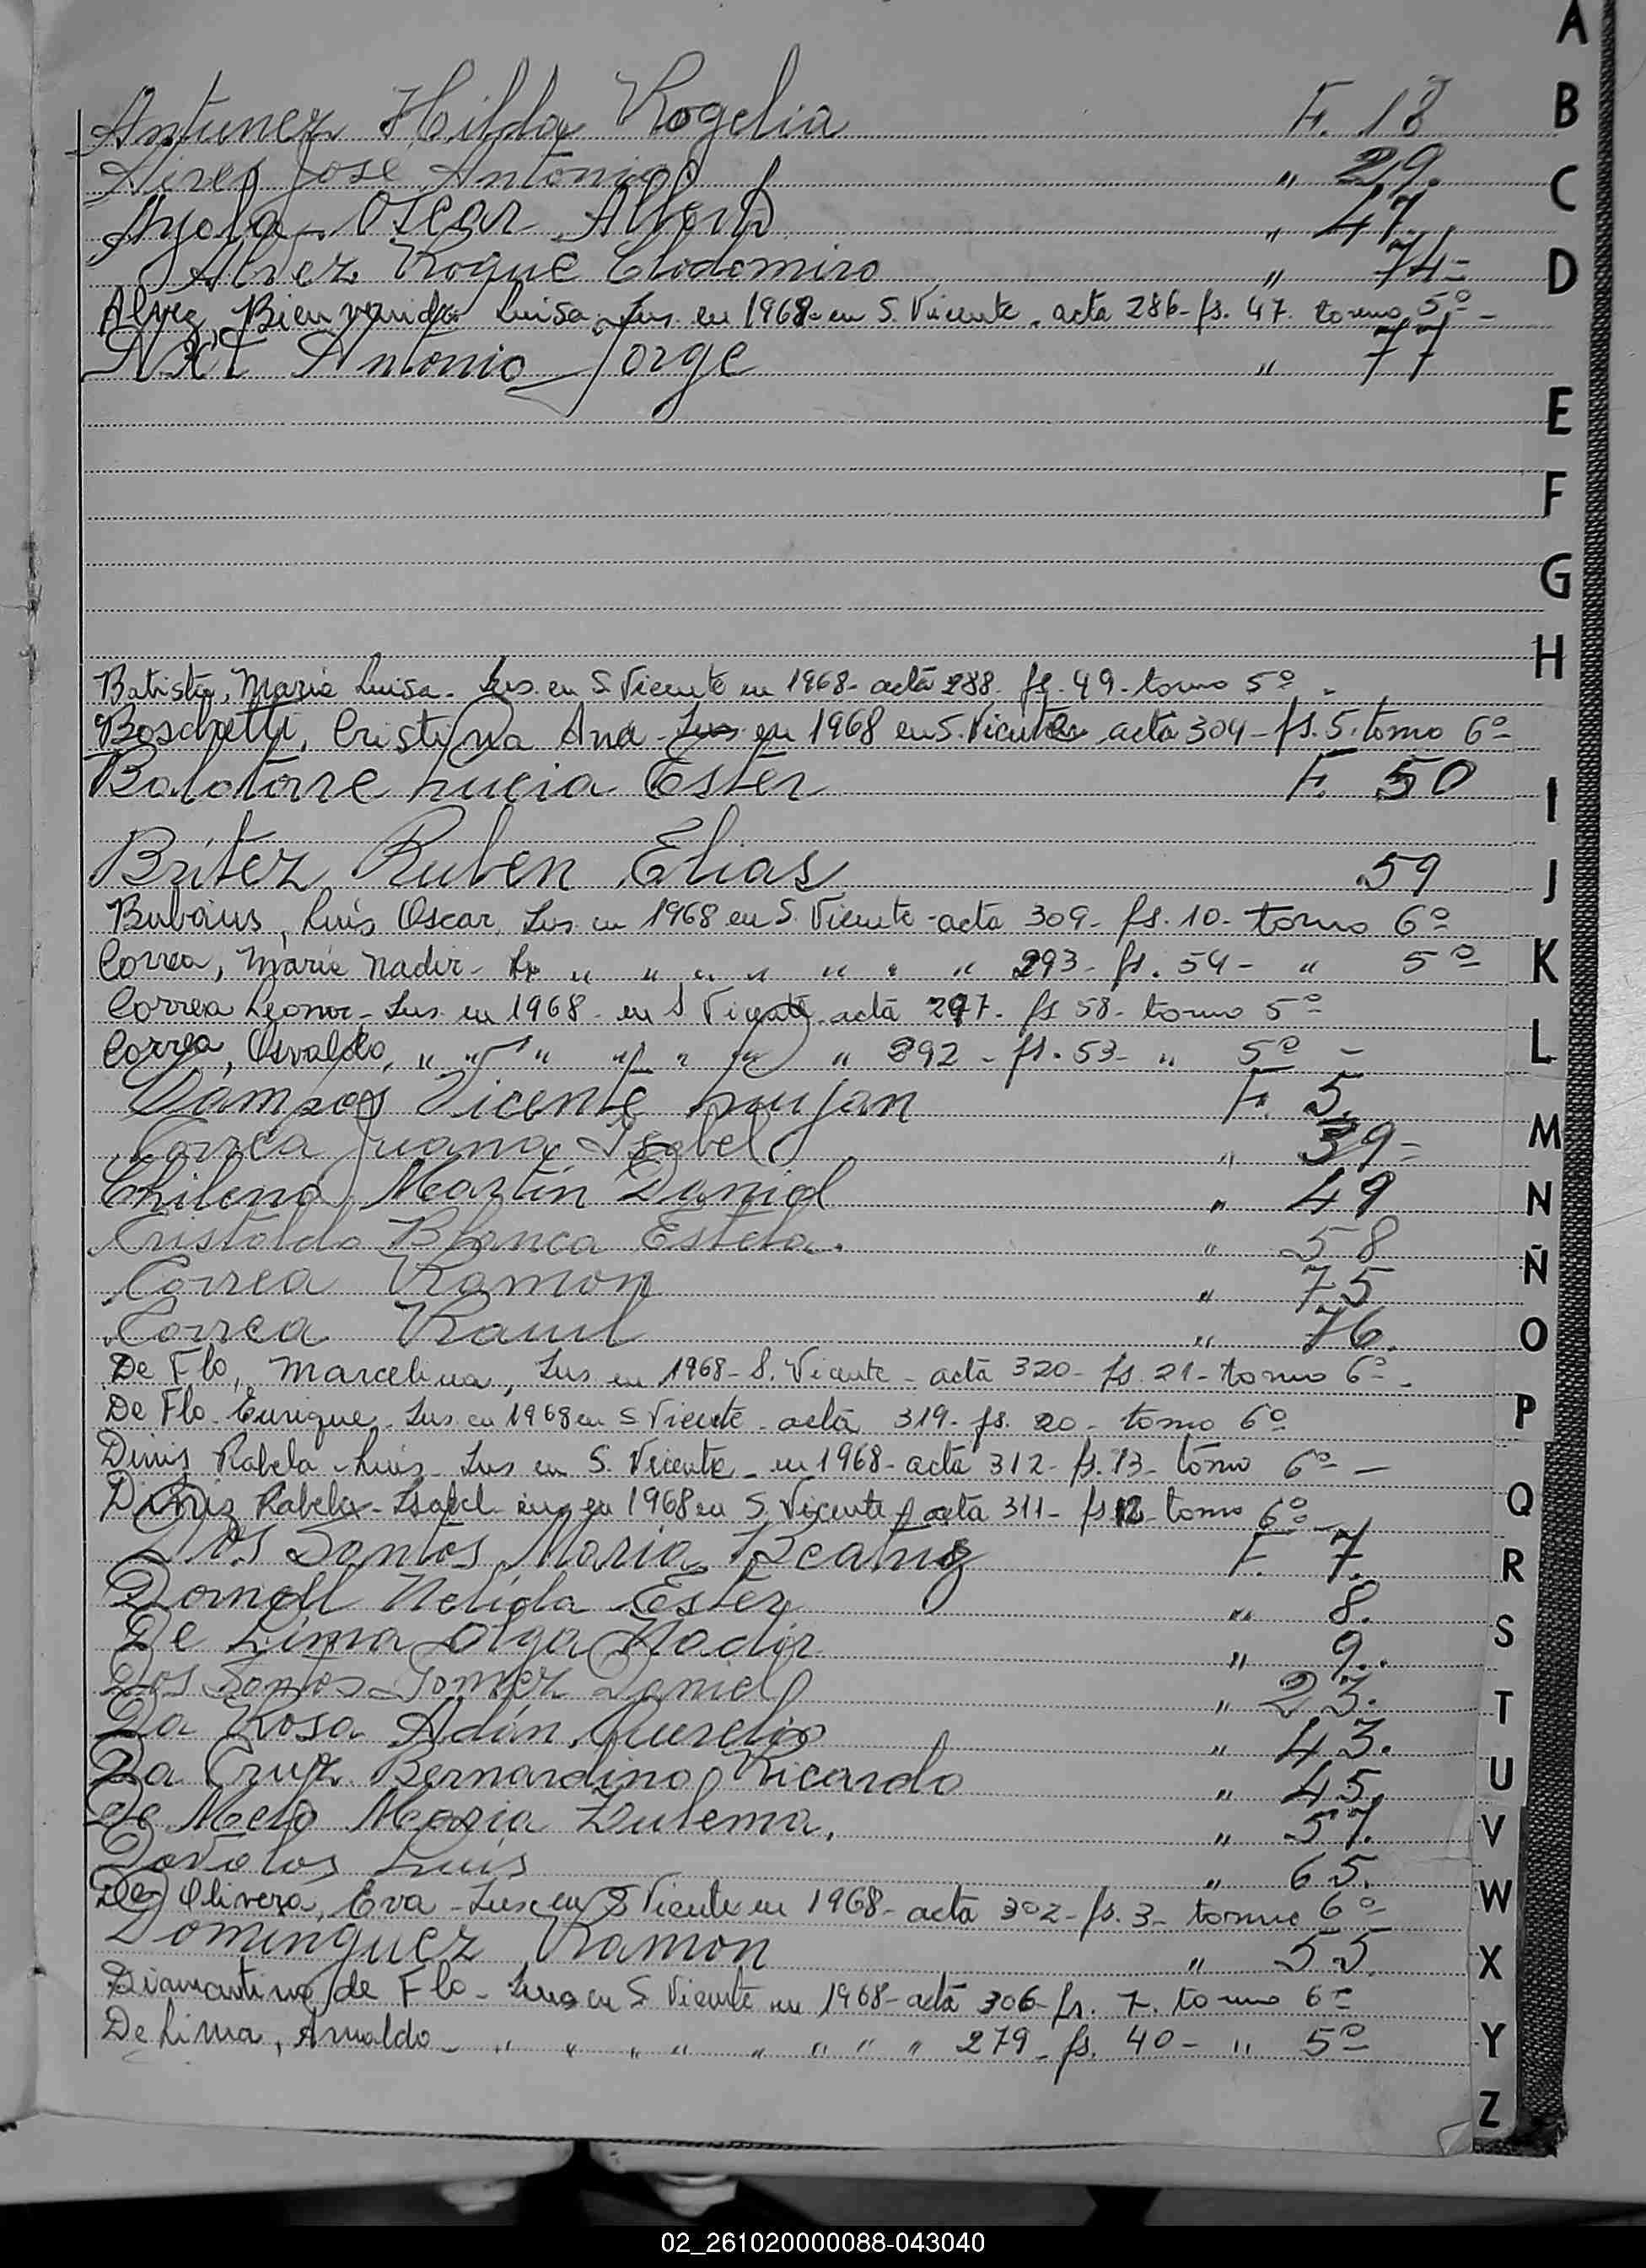 Antunez Hilda Rogelia F. 18
Aires Jose Antonio " 29.
Ayola Oscar Alberto " 47.
Alvez Roque Clodomiro " 74=
Alvez, Bienvenida Luisa. Ins. en 1968 en S. Vicente. acta 286- fs. 47. tomo 5º -
Antonio Jorge " 77
Batista, Maria Luisa- Ins. en S. Vicente en 1968- acta 288. fs. 49- tomo 5º -
Boschetti, Cristina Ana- Ins en 1968 en S. Vicente acta 304- fs. 5. tomo 6º
Balatorre Lucia Ester F. 50
Britez Ruben Elias 59
Luis Oscar. Ins. en 1968 en S. Vicente - acta 309- fs. 10- tomo 6º
Correa, Maria Nadir- " " " " " " " 293- fs. 54- " 5º
Correa Leonor- Ins. en 1968- en S Vicente- acta 297- fs 58- tomo 5º
Correa, Osvaldo, " " " " " " " 292- fs. 53- " 5º -
Vicente Lujan F. 5.
Correa Juana Isabel " 39=
Chileno Martin Daniel " 49
Cristaldo Blanca Estela. " 58
Correa Ramon " 75
Correa Raul " 76.
De Flo, Marcelina, Ins en 1968- S. Vicente- acta 320- fs. 21- tomo 6º-
De Flo Enrique- Ins. en 1968 en S Vicente- acta 319- fs. 20- tomo 6º
Dinis Rabela- Luis- Ins en S. Vicente- en 1968- acta 312- fs. 13- tomo 6º -
Diniz Rabela- Isabel- en 1968 en S. Vicente acta 311- fs 12- tomo 6º -
Dos Santos Maria Beatriz F. 7.
Dornell Nelida Ester " 8.
De Lima Olga Nadir " 9.
Dos Santos Gomez Daniel " 23.
Da Rosa Adán Aurelio " 43.
Da Cruz Bernardino Ricardo " 45.
De Melo Maria Zulema. " 57.
Davalos Luis " 65.
De Olivera, Eva- Ins en S Vicente en 1968- acta 302- fs. 3- tomo 6º
Dominguez Ramon " 55.
Diamantina de Flo- Ins en S Vicente en 1968- acta 306- fs. 7. tomo 6º
De Lima, Arnaldo- " " " " " " " " 279- fs. 40- " 5º
A
B
C
D
E
F
G
H
I
J
K
L
M
N
Ñ
O
P
Q
R
S
T
U
V
W
X
Y
Z
02_261020000088-043040